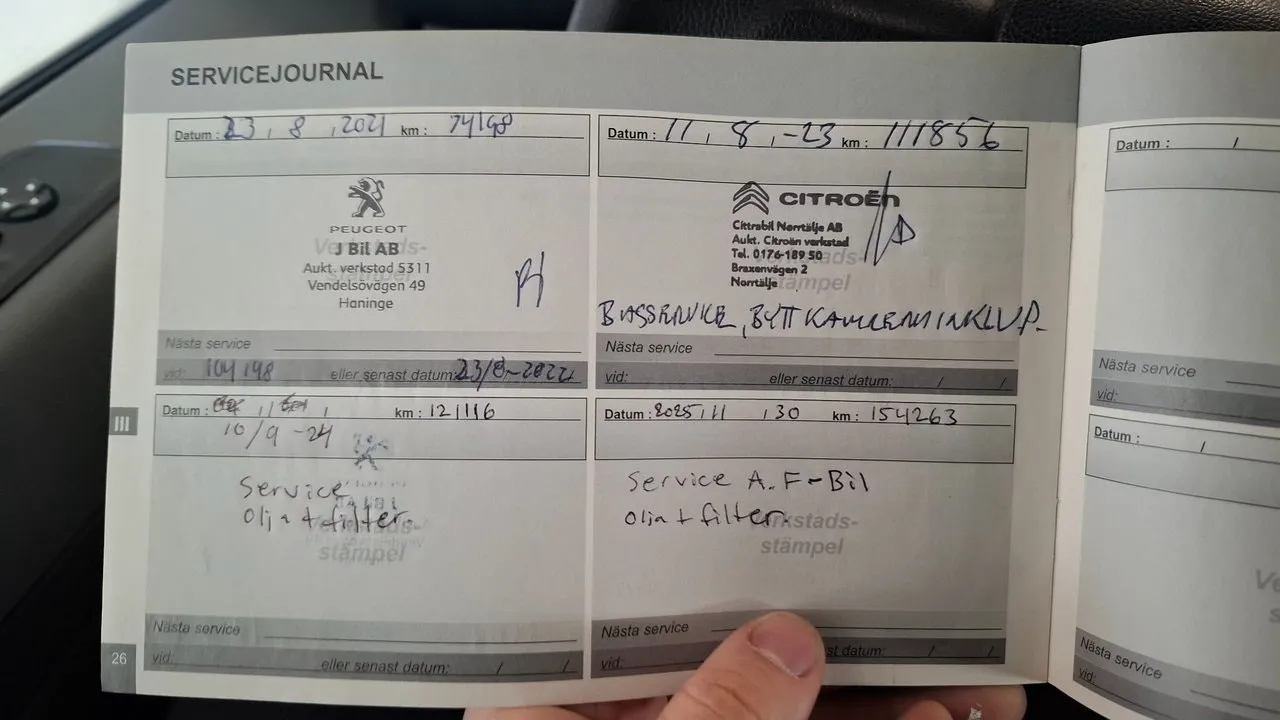 SERVICEJOURNAL
Datum : 23 , 8 , 2021 km : 74198
PEUGEOT
J Bil AB
Aukt. verkstad 5311
Vendelsövägen 49
Haninge
Nästa service
vid: 104198 eller senast datum: 23/8-2022
Datum : 11 , 8 , -23 km : 111856
CITROËN
Cittrabil Norrtälje AB
Aukt. Citroën verkstad
Tel. 0176-189 50
Braxenvägen 2
Norrtälje
Verkstads-
stämpel
BASSERVICE, BYTT KAMREM INKL V.P.
Nästa service
vid: eller senast datum: / /
III
Datum : km : 121116
10/9 -24
Service
Olja + filter.
stämpel
Nästa service
vid: eller senast datum: / /
Datum : 2025 , 11 , 30 km : 154263
Service A.F-Bil
Olja + filter.
Verkstads-
stämpel
Nästa service
vid: st datum: / /
26
Datum : /
Nästa service
vid:
Datum : /
Nästa service
vid: